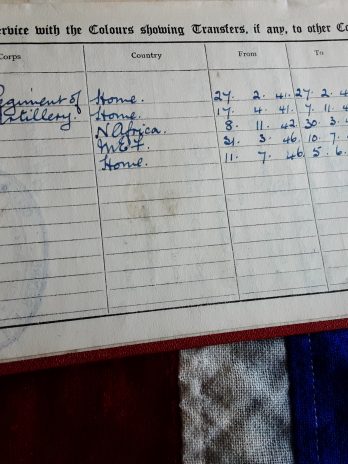 ervice with the Colours showing Transfers, if any, to other Co
Corps Country From To
egiment of Home. 27. 2. 41. 27. 2. 4
rtillery. Home. 17. 4. 41. 7. 11. 4
N Africa. 8. 11. 42. 30. 3. 4
M.E.F. 31. 3. 46. 10. 7.
Home. 11. 7. 46. 5. 6.